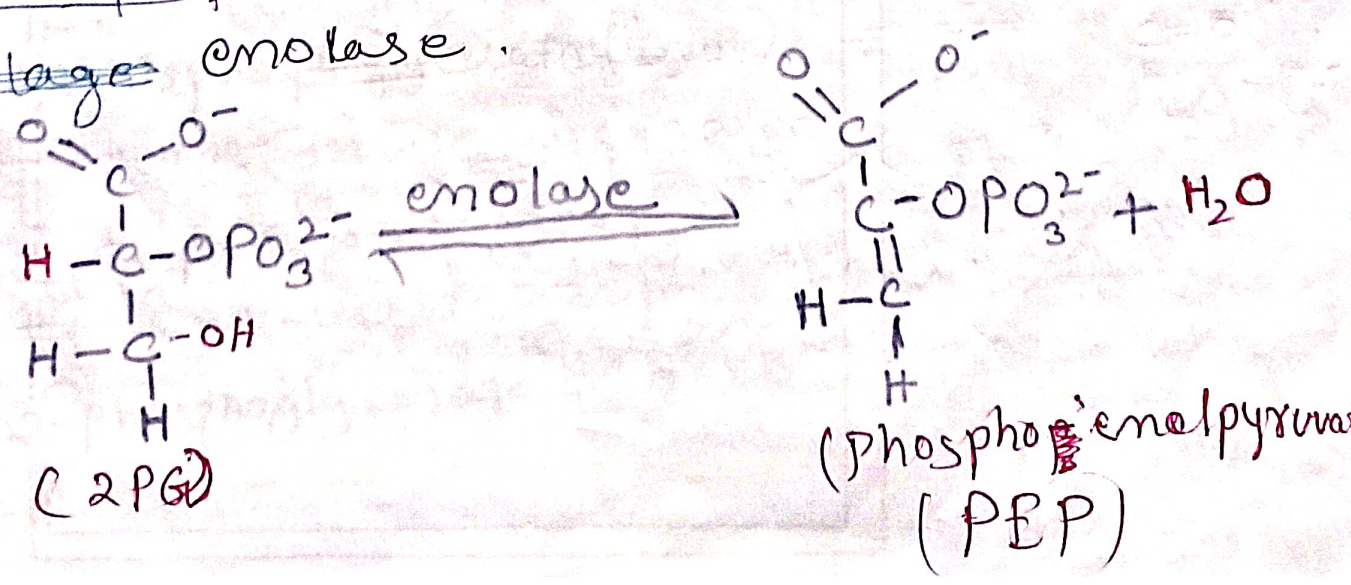 enolase.
O O⁻
C
H-C-OPO₃²⁻
H-C-OH
H
(2PG)
enolase
O O⁻
C
C-OPO₃²⁻ + H₂O
H-C
H
(Phospho enolpyruva
(PEP)